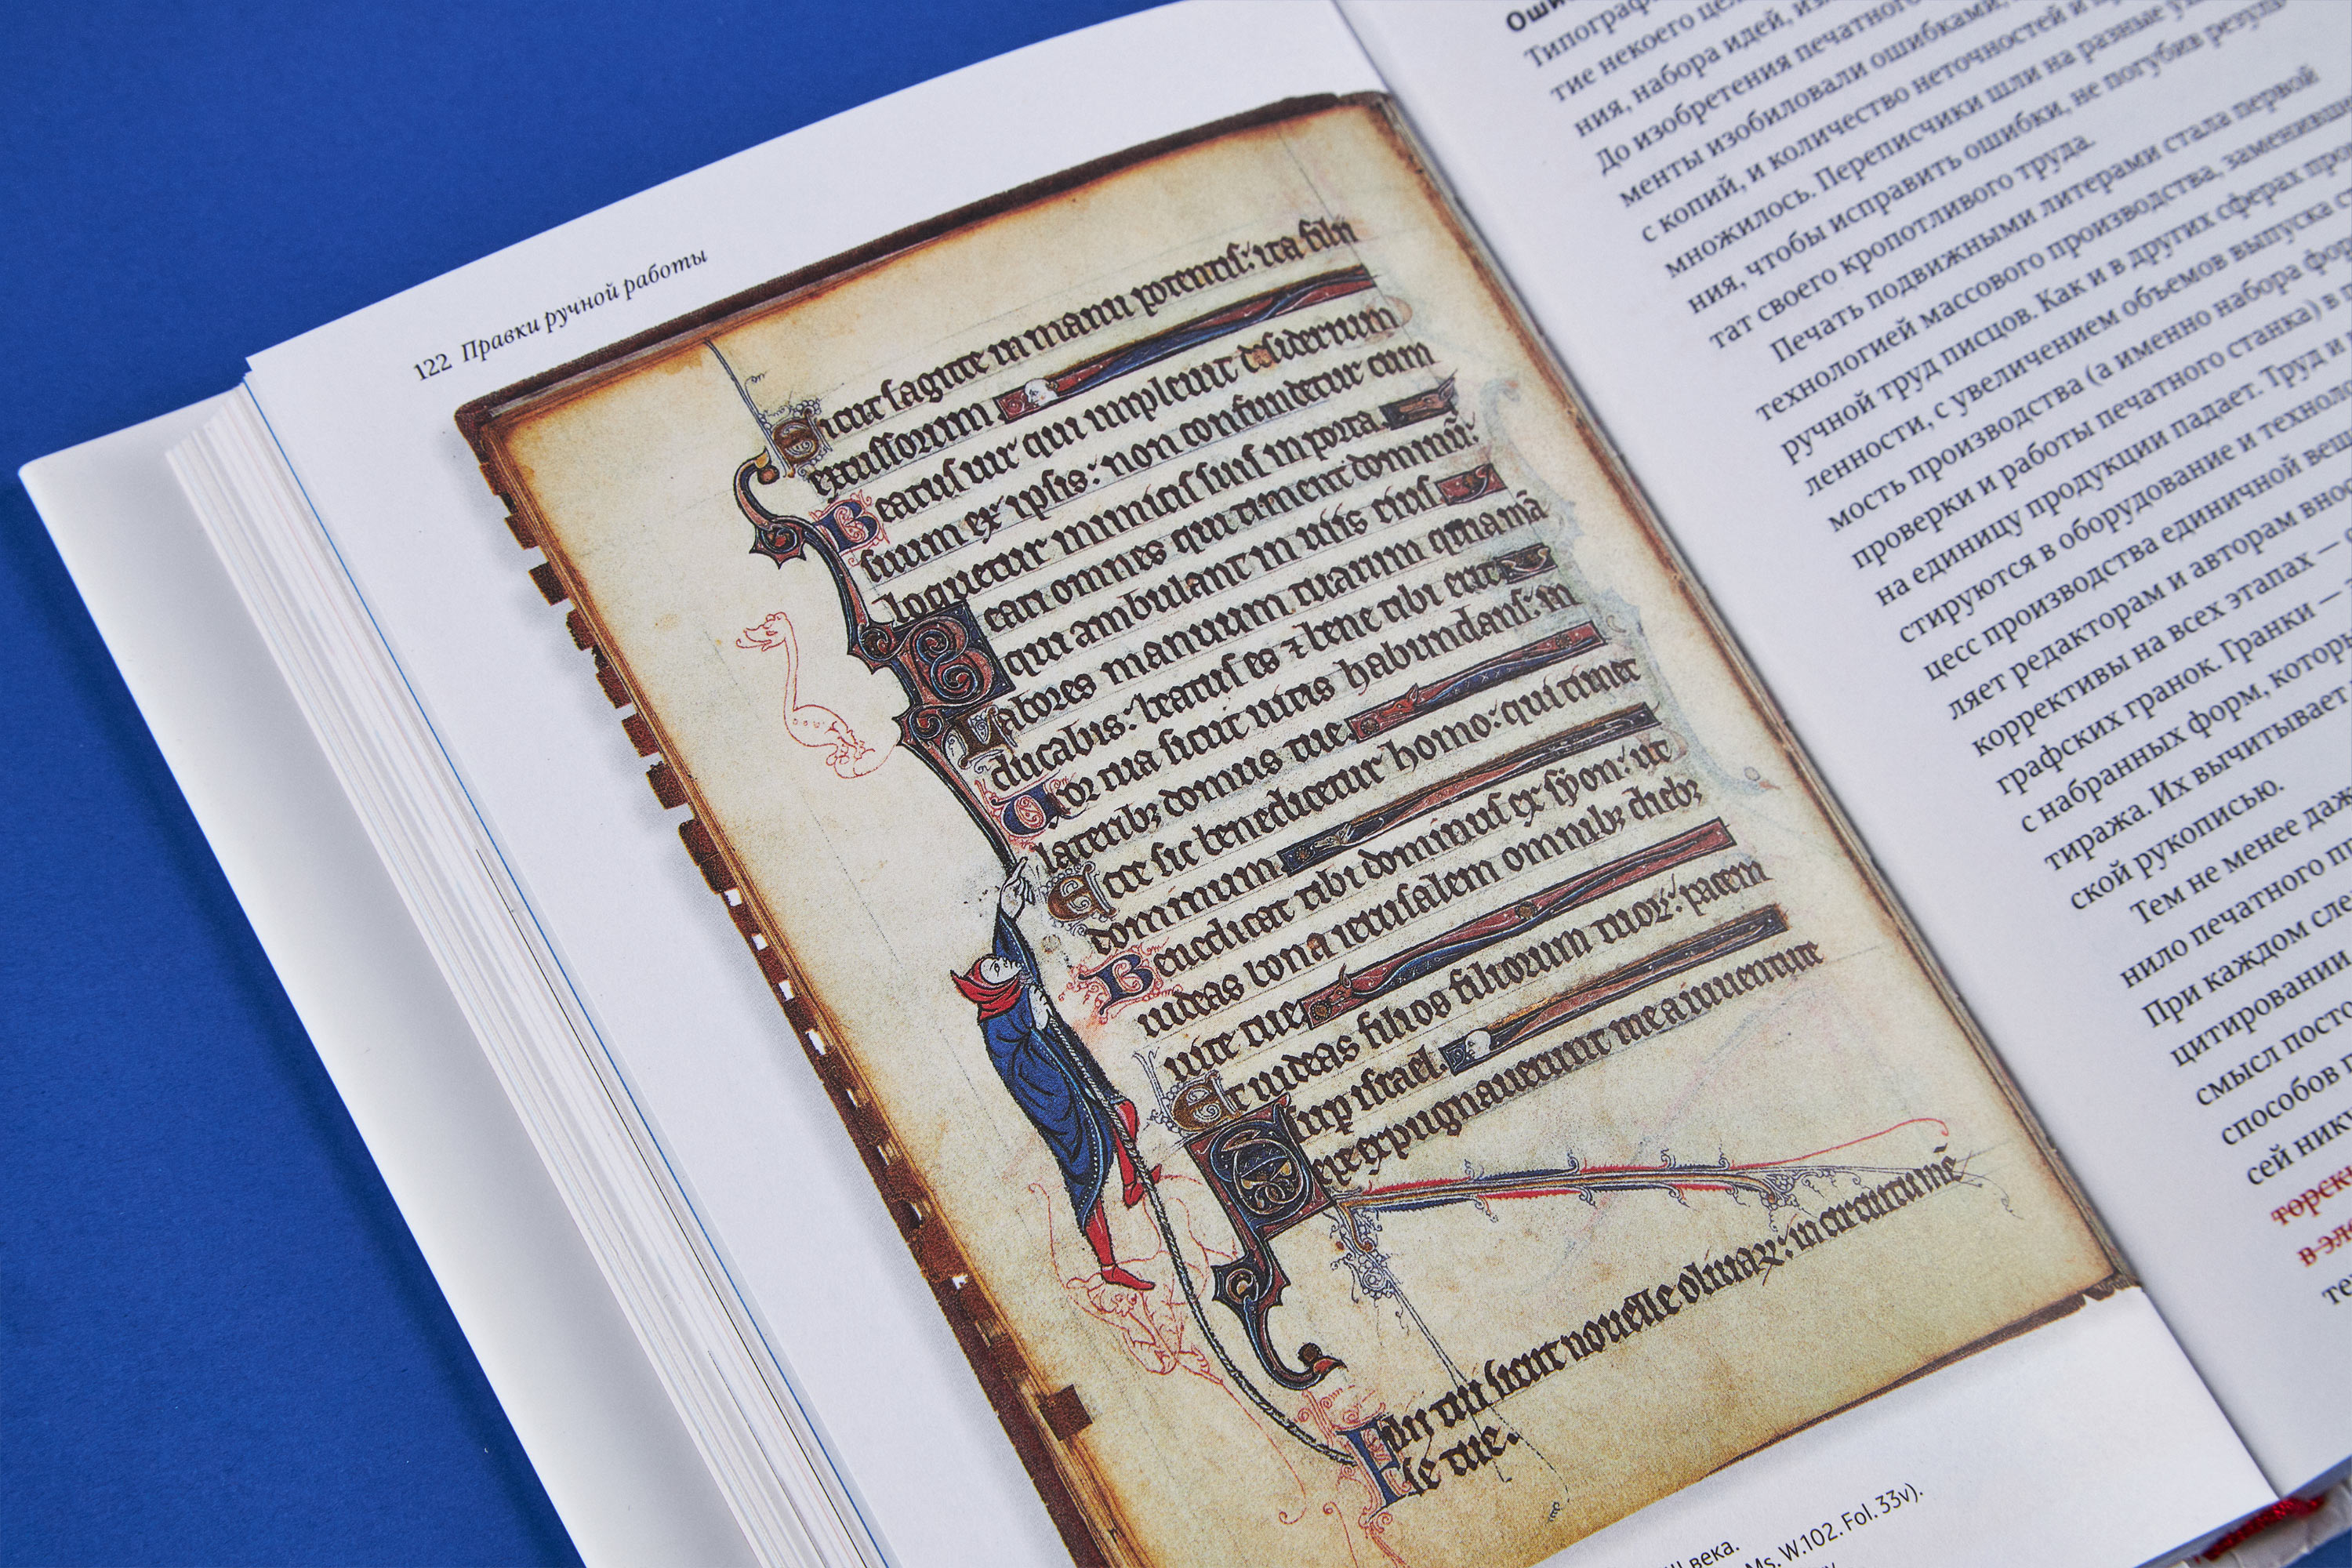 122 Правки ручной работы
Sicut sagitte in manu potentis: ita filii
excussorum
Beatus uir qui impleuit desiderium
suum ex ipsis: non confundetur cum
loquetur inimicis suis in porta.
Beati omnes qui timent dominū:
qui ambulant in uiis eius
Labores manuum tuarum quia mā
ducabis: beatus es ⁊ bene tibi erit
Uxor tua sicut uitis habundans: in
lateribꝫ domus tue
Ecce sic benedicetur homo: qui timet
dominum
Benedicat tibi dominus ex syon: ut
uideas bona ierusalem omnibꝫ diebꝫ
uite tue
Et uideas filios filiorum tuoꝝ: pacem
sup israel.
Sepe expugnauerunt me a iuuentute
Filii tui sicut nouelle oliuaꝝ: in circuitu mē
se tue.
века.
Ms. W.102. Fol. 33v).
Типограф
тие некоего
ния, набора идей,
До изобретения печатного
менты изобиловали ошибками,
с копий, и количество неточностей и
множилось. Переписчики шли на разные
ния, чтобы исправить ошибки, не погубив резуль
тат своего кропотливого труда.
Печать подвижными литерами стала первой
технологией массового производства, заменивш
ручной труд писцов. Как и в других сферах про
ленности, с увеличением объемов выпуска
мость производства (а именно набора фор
проверки и работы печатного станка) в
на единицу продукции падает. Труд и
стируются в оборудование и технол
цесс производства единичной вещ
ляет редакторам и авторам внос
коррективы на всех этапах —
графских гранок. Гранки —
с набранных форм, котор
тиража. Их вычитывает
ской рукописью.
Тем не менее даж
нило печатного пр
При каждом сле
цитировании
смысл посто
способов
сей нику
торск
в эл
те